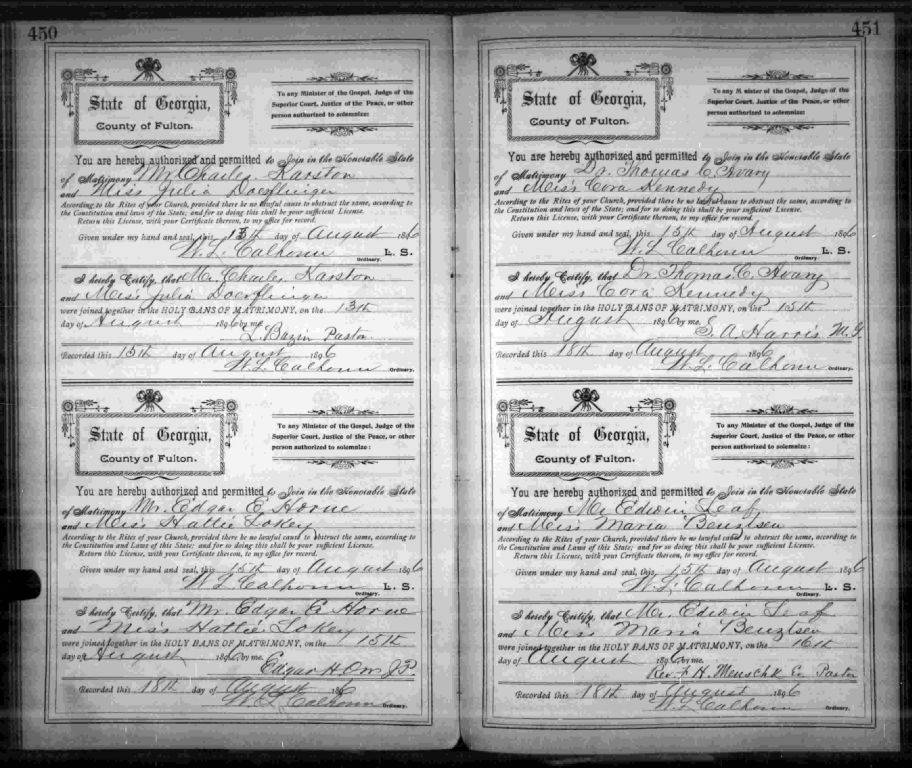 450
State of Georgia,
County of Fulton.
To any Minister of the Gospel, Judge of the
Superior Court, Justice of the Peace, or other
person authorized to solemnize:
You are hereby authorized and permitted to Join in the Honorable State
of Matrimony Mr. Charles Karston
and Miss Julia Doerflinger
According to the Rites of your Church, provided there be no lawful cause to obstruct the same, according to
the Constitution and laws of the State; and for so doing this shall be your sufficient License.
Return this License, with your Certificate thereon, to my office for record.
Given under my hand and seal, this 13th day of August 1896
W. L. Calhoun L. S.
Ordinary.
I hereby Certify, that Mr. Charles Karston
and Miss Julia Doerflinger
were joined together in the HOLY BANS OF MATRIMONY, on the 13th
day of August 1896 by me.
L. Bazin Pastor
Recorded this 15th day of August 1896
W. L. Calhoun Ordinary.
State of Georgia,
County of Fulton.
To any Minister of the Gospel, Judge of the
Superior Court, Justice of the Peace, or other
person authorized to solemnize:
You are hereby authorized and permitted to Join in the Honorable State
of Matrimony Mr. Edgar E. Horne
and Miss Hattie Lokey
According to the Rites of your Church, provided there be no lawful cause to obstruct the same, according to
the Constitution and Laws of this State; and for so doing this shall be your sufficient License.
Return this License, with your Certificate thereon, to my office for record.
Given under my hand and seal, this 15th day of August 1896
W. L. Calhoun L. S.
Ordinary.
I hereby Certify, that Mr. Edgar E. Horne
and Miss Hattie Lokey
were joined together in the HOLY BANS OF MATRIMONY, on the 15th
day of August 1896 by me.
Edgar H. Orr J.P.
Recorded this 18th day of August 1896
W. L. Calhoun Ordinary.
451
State of Georgia,
County of Fulton.
To any Minister of the Gospel, Judge of the
Superior Court, Justice of the Peace, or other
person authorized to solemnize:
You are hereby authorized and permitted to Join in the Honorable State
of Matrimony Dr. Thomas C. Avary
and Miss Cora Kennedy
According to the Rites of your Church, provided there be no lawful cause to obstruct the same, according to
the Constitution and laws of the State; and for so doing this shall be your sufficient License.
Return this License, with your Certificate thereon, to my office for record.
Given under my hand and seal, this 15th day of August 1896
W. L. Calhoun L. S.
Ordinary.
I hereby Certify, that Dr. Thomas C. Avary
and Miss Cora Kennedy
were joined together in the HOLY BANS OF MATRIMONY, on the 15th
day of August 1896 by me.
S. A. Harris M. G.
Recorded this 18th day of August 1896
W. L. Calhoun Ordinary.
State of Georgia,
County of Fulton.
To any Minister of the Gospel, Judge of the
Superior Court, Justice of the Peace, or other
person authorized to solemnize:
You are hereby authorized and permitted to Join in the Honorable State
of Matrimony Mr. Edwin Leaf
and Miss Maria Benztsen
According to the Rites of your Church, provided there be no lawful cause to obstruct the same, according to
the Constitution and Laws of this State; and for so doing this shall be your sufficient License.
Return this License, with your Certificate thereon, to my office for record.
Given under my hand and seal, this 15th day of August 1896
W. L. Calhoun L. S.
Ordinary.
I hereby Certify, that Mr. Edwin Leaf
and Miss Maria Benztsen
were joined together in the HOLY BANS OF MATRIMONY, on the 16th
day of August 1896 by me.
Rev. F. H. Meuschke Pastor
Recorded this 18th day of August 1896
W. L. Calhoun Ordinary.